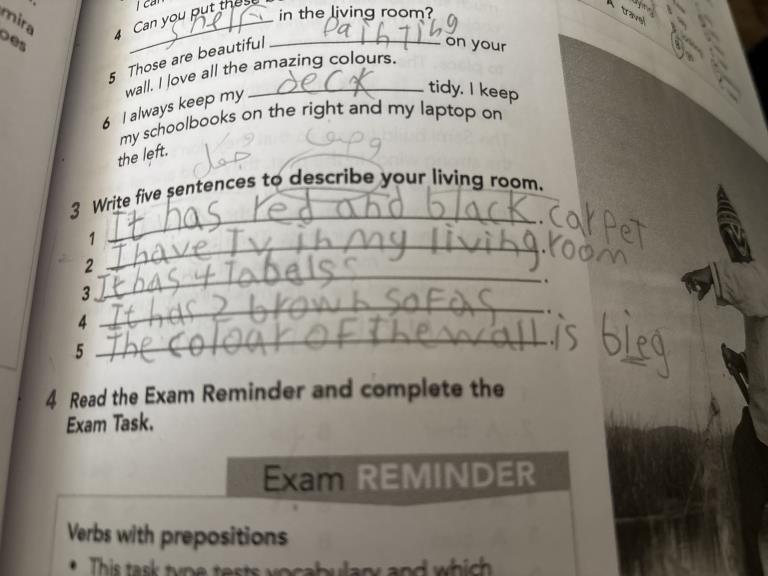 mira
oes
I can
4 Can you put these
shelf in the living room?
5 Those are beautiful painting on your
wall. I love all the amazing colours.
6 I always keep my deck tidy. I keep
my schoolbooks on the right and my laptop on
the left.
3 Write five sentences to describe your living room.
1 It has red and black. carpet
2 I have Tv in my living. room
3 It has 4 Tabels .
4 It has 2 brown sofas .
5 The colour of the wall. is bieg
4 Read the Exam Reminder and complete the
Exam Task.
Exam REMINDER
Verbs with prepositions
• This task type tests vocabulary and which
A travel